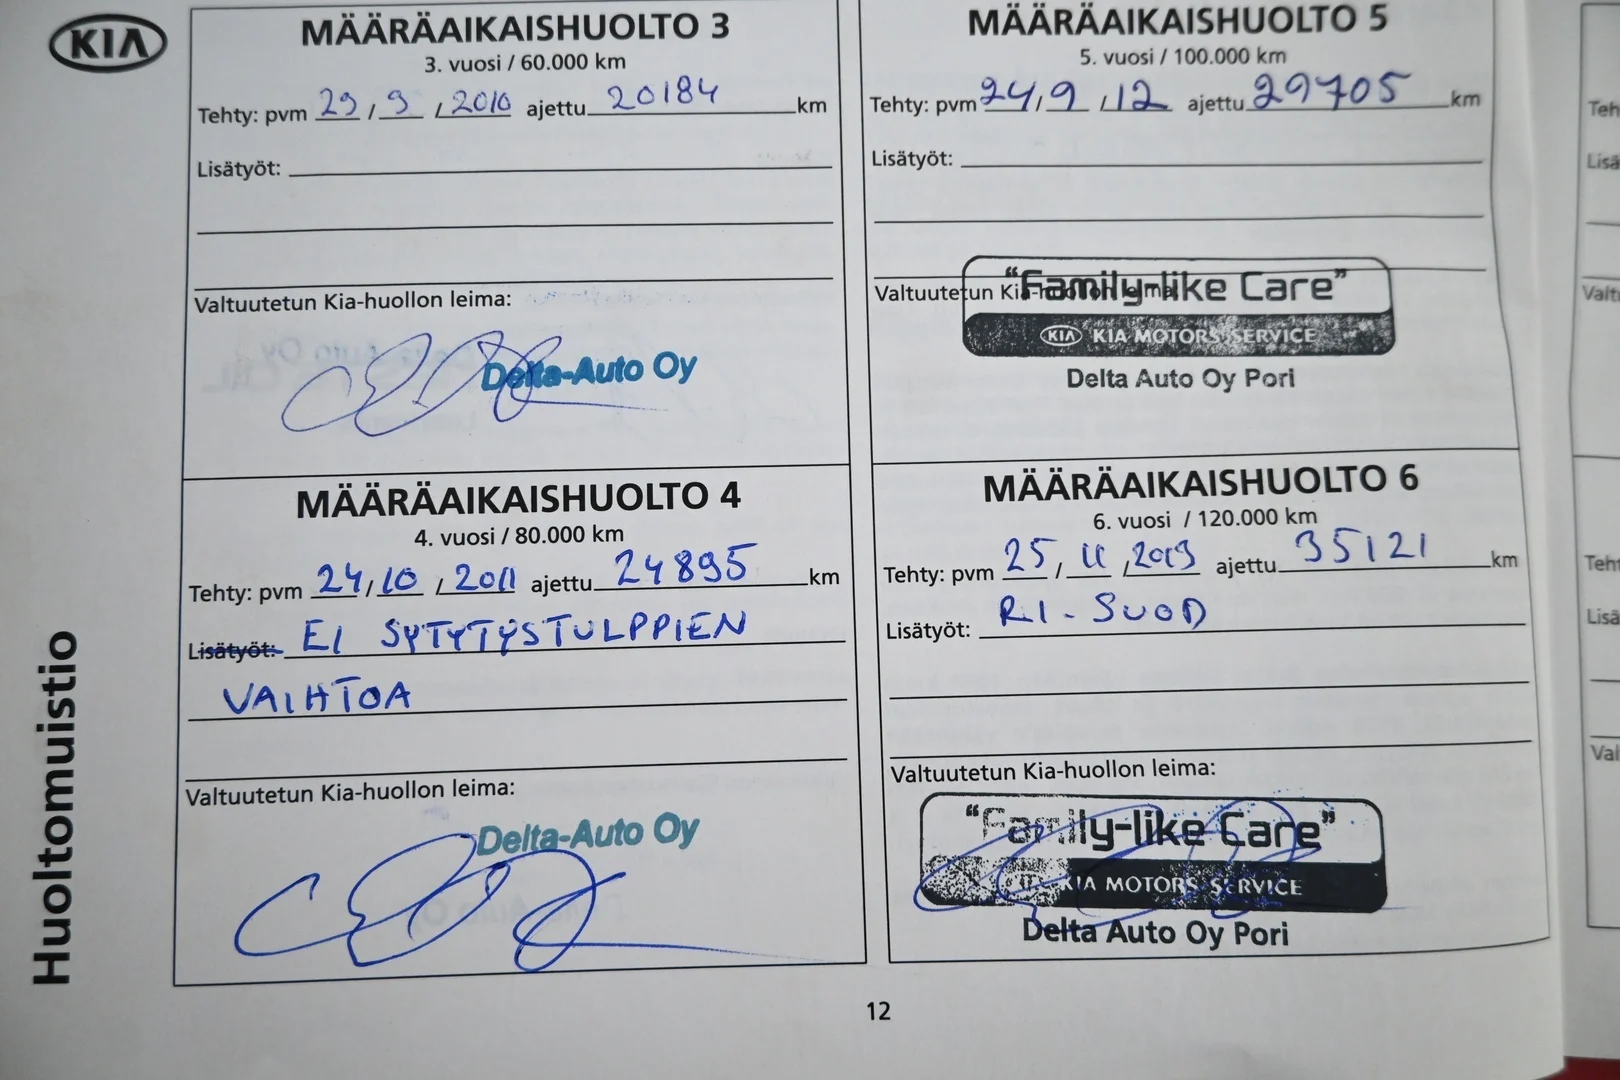 KIA
Huoltomuistio
MÄÄRÄAIKAISHUOLTO 3
3. vuosi / 60.000 km
Tehty: pvm 29 / 9 / 2010 ajettu 20184 km
Lisätyöt:
Valtuutetun Kia-huollon leima:
Delta-Auto Oy
MÄÄRÄAIKAISHUOLTO 4
4. vuosi / 80.000 km
Tehty: pvm 24 / 10 / 2011 ajettu 24895 km
Lisätyöt: EI SYTYTYSTULPPIEN
VAIHTOA
Valtuutetun Kia-huollon leima:
Delta-Auto Oy
MÄÄRÄAIKAISHUOLTO 5
5. vuosi / 100.000 km
Tehty: pvm 24 / 9 / 12 ajettu 29705 km
Lisätyöt:
Valtuutetun Kia-huollon leima:
"Family-like Care"
KIA KIA MOTORS SERVICE
Delta Auto Oy Pori
MÄÄRÄAIKAISHUOLTO 6
6. vuosi / 120.000 km
Tehty: pvm 25 / 11 / 2013 ajettu 35121 km
Lisätyöt: RI-SUOD
Valtuutetun Kia-huollon leima:
"Family-like Care"
KIA MOTORS SERVICE
Delta Auto Oy Pori
12
Teh
Lisä
Valt
Teht
Lisä
Val